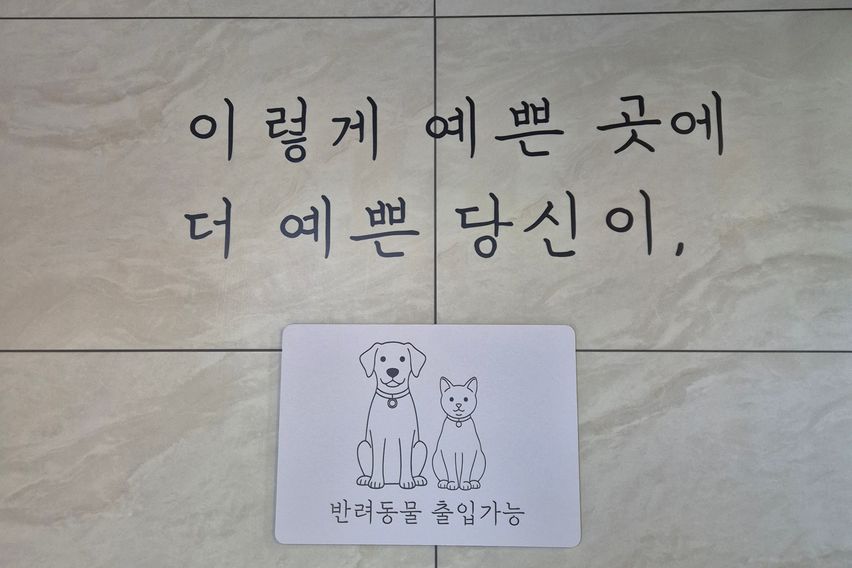 이렇게 예쁜 곳에
더 예쁜 당신이,
반려동물 출입가능